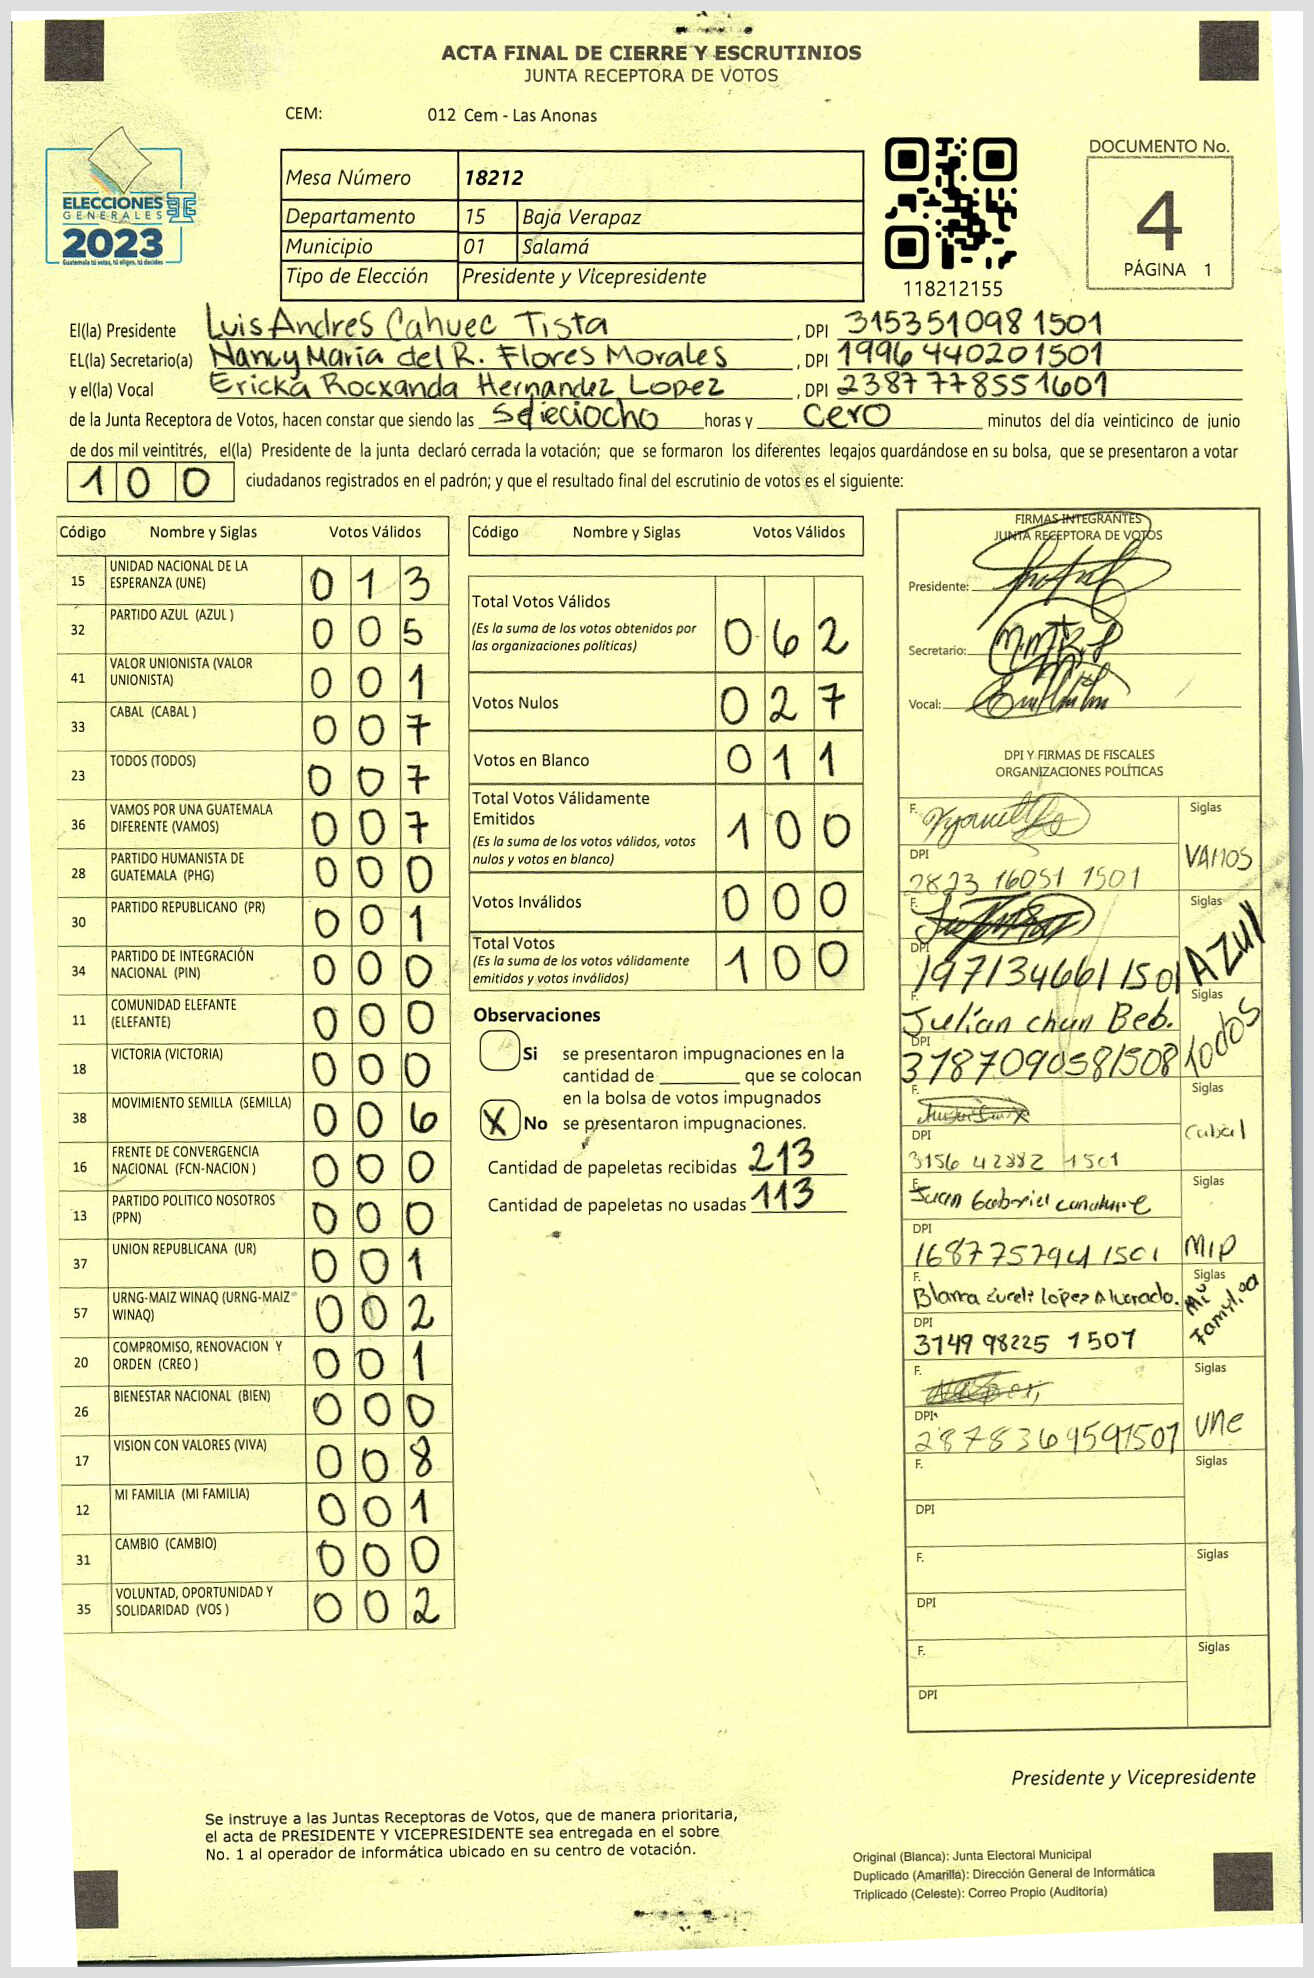 ACTA FINAL DE CIERRE Y ESCRUTINIOS
JUNTA RECEPTORA DE VOTOS
CEM: 012 Cem - Las Anonas
ELECCIONES
GENERALES
2023
Guatemala tú votas, tú eliges, tú decides
Mesa Número 18212
Departamento 15 Baja Verapaz
Municipio 01 Salamá
Tipo de Elección Presidente y Vicepresidente
118212155
DOCUMENTO No.
4
PÁGINA 1
El(la) Presidente Luis Andres Cahuec Tista , DPI 315351098 1501
EL(la) Secretario(a) Nancy Maria del R. Flores Morales , DPI 1996 44020 1501
y el(la) Vocal Ericka Rocxanda Hernandez Lopez , DPI 2387 77855 1601
de la Junta Receptora de Votos, hacen constar que siendo las dieciocho horas y cero minutos del día veinticinco de junio
de dos mil veintitrés, el(la) Presidente de la junta declaró cerrada la votación; que se formaron los diferentes legajos guardándose en su bolsa, que se presentaron a votar
100 ciudadanos registrados en el padrón; y que el resultado final del escrutinio de votos es el siguiente:
Código Nombre y Siglas Votos Válidos
15 UNIDAD NACIONAL DE LA ESPERANZA (UNE) 013
32 PARTIDO AZUL (AZUL ) 005
41 VALOR UNIONISTA (VALOR UNIONISTA) 001
33 CABAL (CABAL ) 007
23 TODOS (TODOS) 007
36 VAMOS POR UNA GUATEMALA DIFERENTE (VAMOS) 007
28 PARTIDO HUMANISTA DE GUATEMALA (PHG) 000
30 PARTIDO REPUBLICANO (PR) 001
34 PARTIDO DE INTEGRACIÓN NACIONAL (PIN) 000
11 COMUNIDAD ELEFANTE (ELEFANTE) 000
18 VICTORIA (VICTORIA) 000
38 MOVIMIENTO SEMILLA (SEMILLA) 006
16 FRENTE DE CONVERGENCIA NACIONAL (FCN-NACION ) 000
13 PARTIDO POLITICO NOSOTROS (PPN) 000
37 UNION REPUBLICANA (UR) 001
57 URNG-MAIZ WINAQ (URNG-MAIZ WINAQ) 002
20 COMPROMISO, RENOVACION Y ORDEN (CREO ) 001
26 BIENESTAR NACIONAL (BIEN) 000
17 VISION CON VALORES (VIVA) 008
12 MI FAMILIA (MI FAMILIA) 001
31 CAMBIO (CAMBIO) 000
35 VOLUNTAD, OPORTUNIDAD Y SOLIDARIDAD (VOS ) 002
Código Nombre y Siglas Votos Válidos
Total Votos Válidos 062
(Es la suma de los votos obtenidos por
las organizaciones políticas)
Votos Nulos 027
Votos en Blanco 011
Total Votos Válidamente
Emitidos 100
(Es la suma de los votos válidos, votos
nulos y votos en blanco)
Votos Inválidos 000
Total Votos 100
(Es la suma de los votos válidamente
emitidos y votos inválidos)
Observaciones
Si se presentaron impugnaciones en la
cantidad de ________ que se colocan
en la bolsa de votos impugnados
X No se presentaron impugnaciones.
Cantidad de papeletas recibidas 213
Cantidad de papeletas no usadas 113
FIRMAS INTEGRANTES
JUNTA RECEPTORA DE VOTOS
Presidente:
Secretario:
Vocal:
DPI Y FIRMAS DE FISCALES
ORGANIZACIONES POLÍTICAS
F. Siglas
VAMOS
DPI
2823 16051 1501
F. Siglas
AZUL
DPI
197134661 1501
F. Siglas
Julian chun Beb.
Todos
DPI
3787090581508
F. Siglas
Cabal
DPI
3156 42882 1501
F. Siglas
Juan Gabriel
MIP
DPI
168775794 1501
F. Siglas
Blanca Lopez Alvarado.
Mi Familia
DPI
3149 98225 1501
F. Siglas
une
DPI
2878369591501
F. Siglas
DPI
F. Siglas
DPI
F. Siglas
DPI
Presidente y Vicepresidente
Se instruye a las Juntas Receptoras de Votos, que de manera prioritaria,
el acta de PRESIDENTE Y VICEPRESIDENTE sea entregada en el sobre
No. 1 al operador de informática ubicado en su centro de votación.
Original (Blanca): Junta Electoral Municipal
Duplicado (Amarilla): Dirección General de Informática
Triplicado (Celeste): Correo Propio (Auditoría)